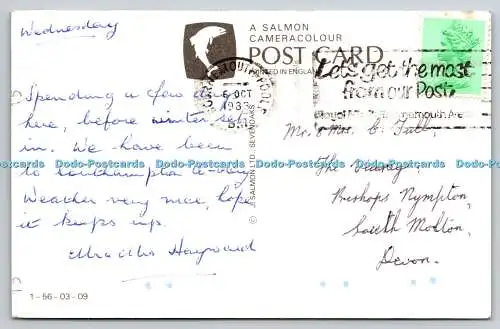 Wednesday
Spending a few days
here, before winter sets
in. We have been
to Southampton to-day
Weather very nice, hope
it keeps up.
Hayward
1-56-03-09
© J SALMON LTD. SEVENOAKS
A SALMON
CAMERACOLOUR
POST CARD
PRINTED IN ENGLAND
5 OCT
1983
Let's get the most
from our Post
Mr. & Mrs. C. Tull,
The
Bishops Nympton,
South Molton,
Devon.
Dodo-Postcards Dodo-Postcards Dodo-Postcards Dodo-Postcards Dodo-Postcards Dodo-Postcards